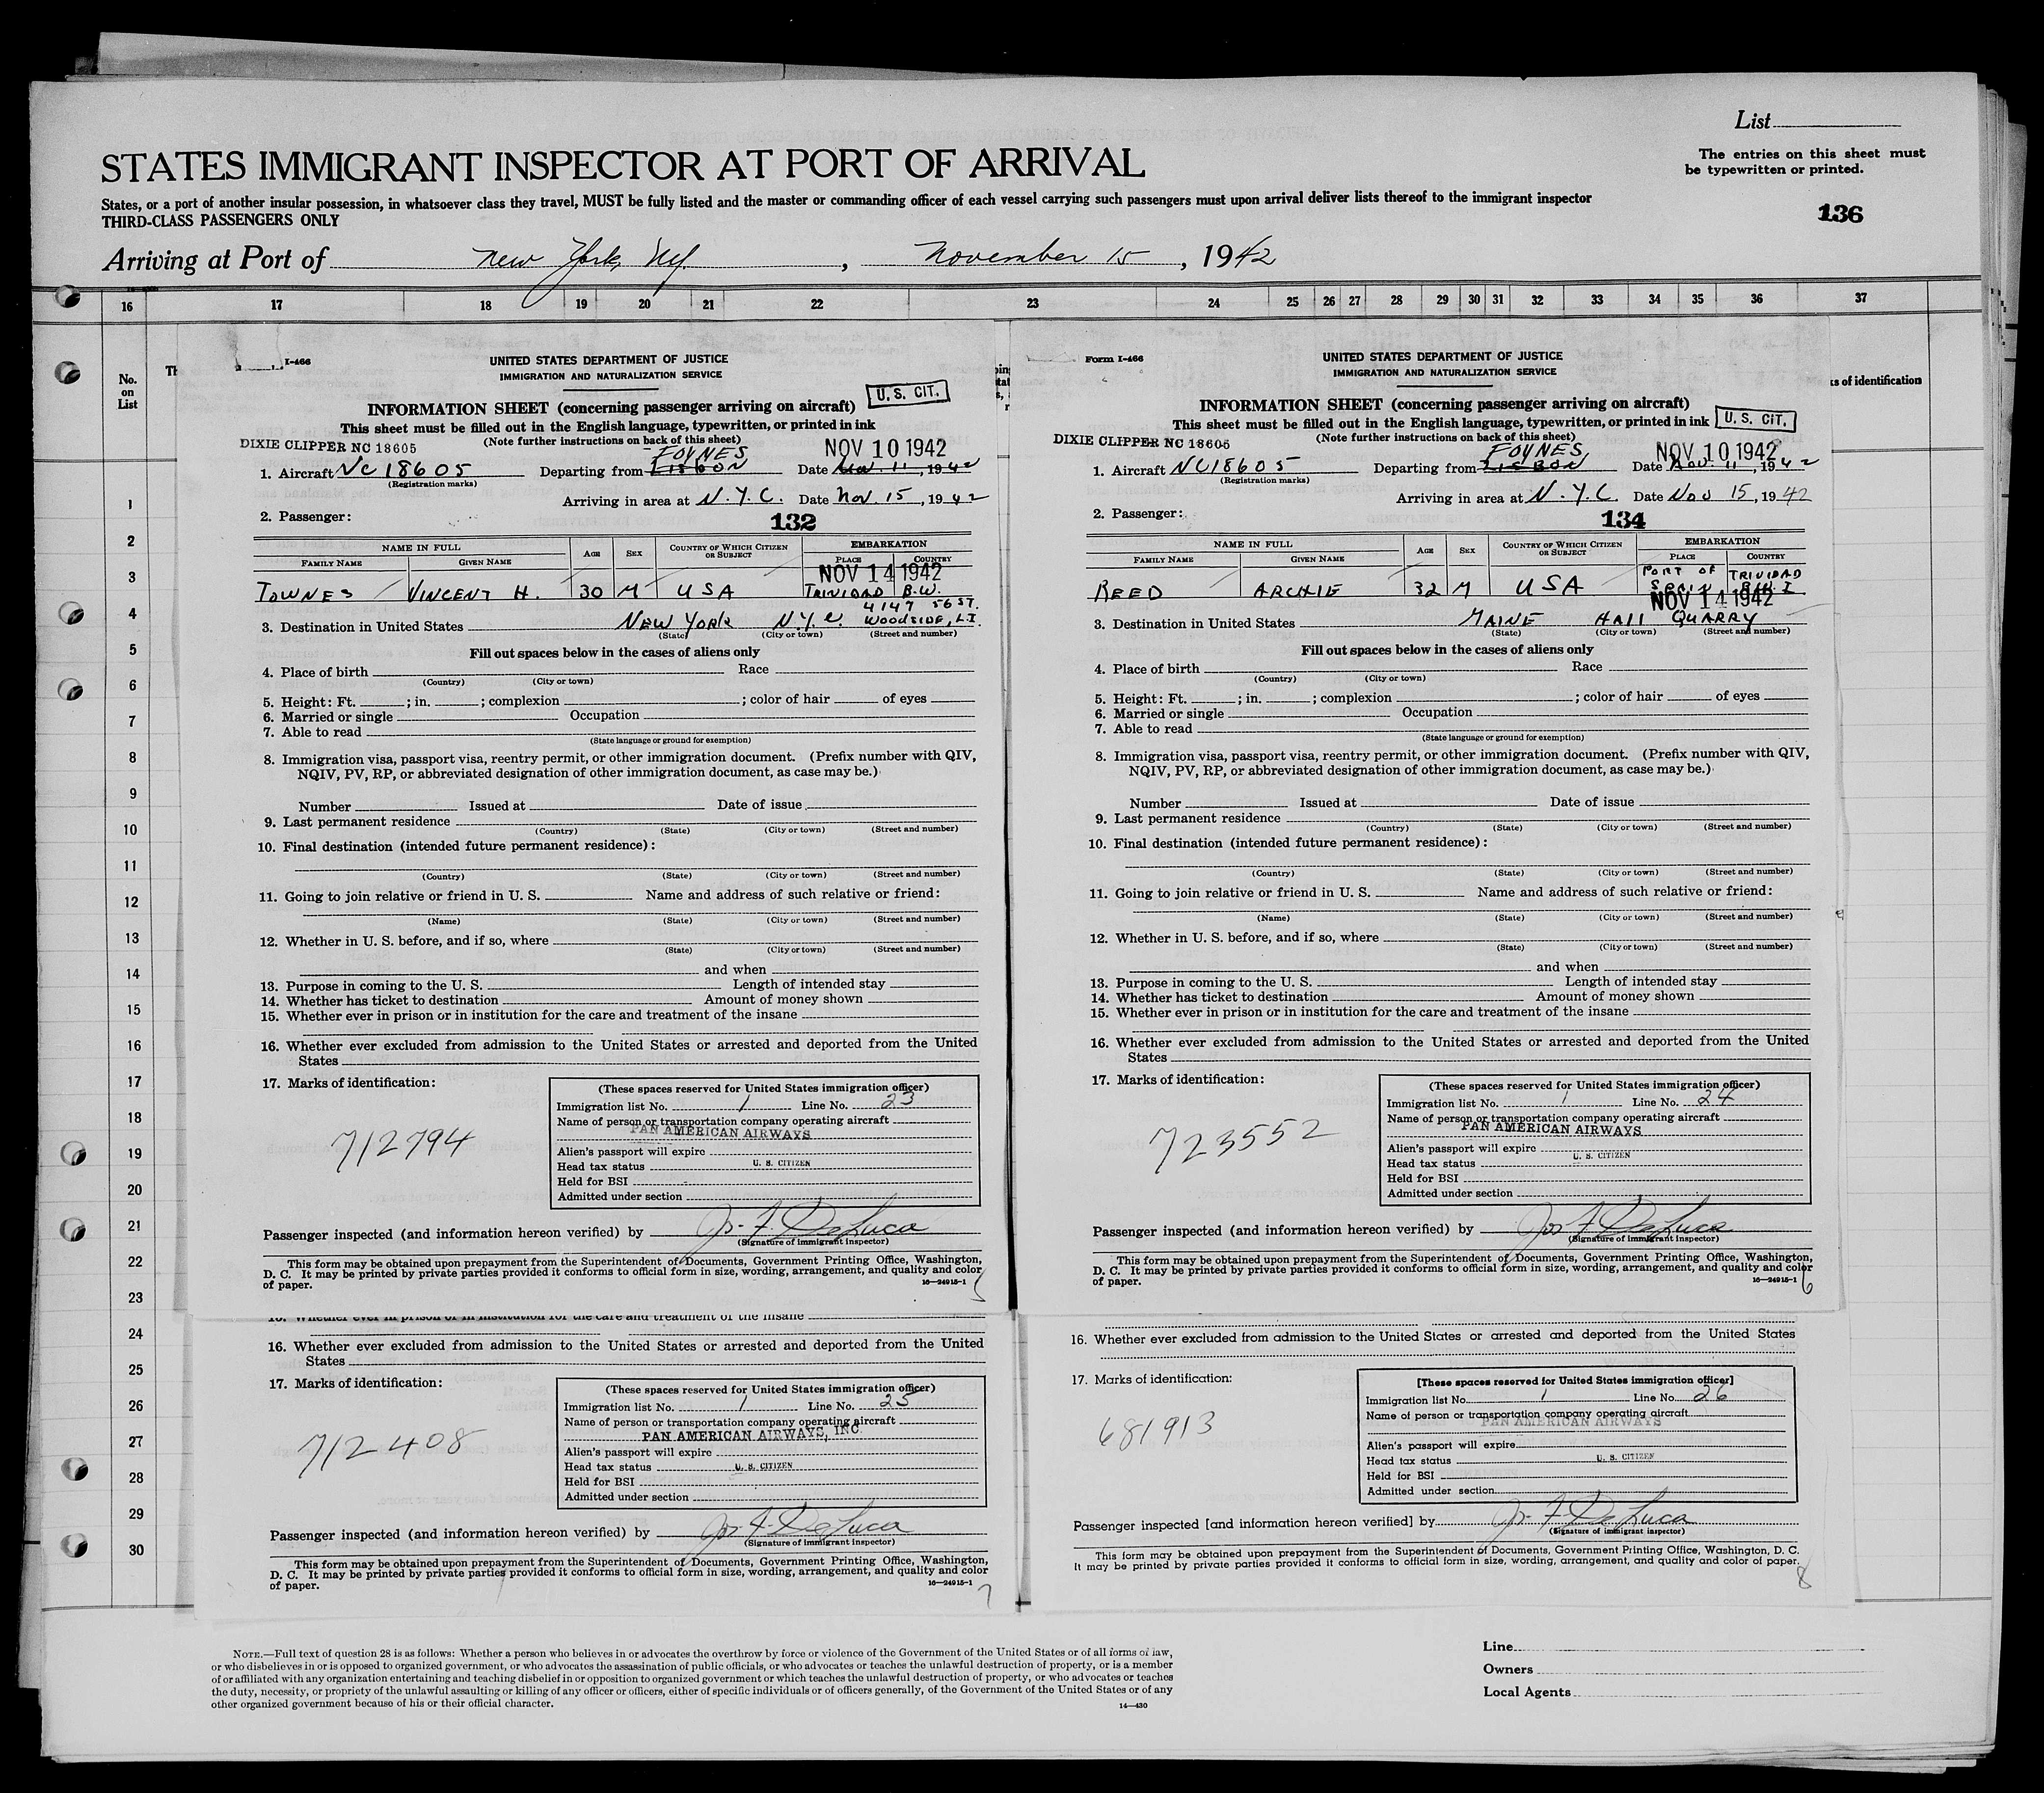 List
STATES IMMIGRANT INSPECTOR AT PORT OF ARRIVAL
The entries on this sheet must
be typewritten or printed.
States, or a port of another insular possession, in whatsoever class they travel, MUST be fully listed and the master or commanding officer of each vessel carrying such passengers must upon arrival deliver lists thereof to the immigrant inspector
THIRD-CLASS PASSENGERS ONLY
136
Arriving at Port of New York, NY. , November 15 , 1942
16 17 18 19 20 21 22 23 24 25 26 27 28 29 30 31 32 33 34 35 36 37
No.
on
List
1
2
3
4
5
6
7
8
9
10
11
12
13
14
15
16
17
18
19
20
21
22
23
24
25
26
27
28
29
30
ks of identification
I-466
UNITED STATES DEPARTMENT OF JUSTICE
IMMIGRATION AND NATURALIZATION SERVICE
U. S. CIT.
INFORMATION SHEET (concerning passenger arriving on aircraft)
This sheet must be filled out in the English language, typewritten, or printed in ink
(Note further instructions on back of this sheet)
DIXIE CLIPPER NC 18605
FOYNES
NOV 10 1942
1. Aircraft NC18605 Departing from LISBON Date Nov. 11, 1942
(Registration marks)
Arriving in area at N.Y.C. Date Nov. 15, 1942
2. Passenger:
132
NAME IN FULL AGE SEX COUNTRY OF WHICH CITIZEN OR SUBJECT EMBARKATION
FAMILY NAME GIVEN NAME PLACE COUNTRY
NOV 14 1942
TOWNES VINCENT H. 30 M USA TRINIDAD B.W.
4147 56 ST.
3. Destination in United States NEW YORK N.Y.C. WOODSIDE, L.I.
(State) (City or town) (Street and number)
Fill out spaces below in the cases of aliens only
4. Place of birth Race
(Country) (City or town)
5. Height: Ft. ; in. ; complexion ; color of hair of eyes
6. Married or single Occupation
7. Able to read
(State language or ground for exemption)
8. Immigration visa, passport visa, reentry permit, or other immigration document. (Prefix number with QIV,
NQIV, PV, RP, or abbreviated designation of other immigration document, as case may be.)
Number Issued at Date of issue
9. Last permanent residence
(Country) (State) (City or town) (Street and number)
10. Final destination (intended future permanent residence):
(Country) (State) (City or town) (Street and number)
11. Going to join relative or friend in U. S. Name and address of such relative or friend:
(Name) (State) (City or town) (Street and number)
12. Whether in U. S. before, and if so, where
(State) (City or town) (Street and number)
and when
13. Purpose in coming to the U. S. Length of intended stay
14. Whether has ticket to destination Amount of money shown
15. Whether ever in prison or in institution for the care and treatment of the insane
16. Whether ever excluded from admission to the United States or arrested and deported from the United
States
17. Marks of identification:
712794
(These spaces reserved for United States immigration officer)
Immigration list No. 1 Line No. 23
Name of person or transportation company operating aircraft
PAN AMERICAN AIRWAYS
Alien's passport will expire
Head tax status U. S. CITIZEN
Held for BSI
Admitted under section
Passenger inspected (and information hereon verified) by Jos. F. DeLuca
(Signature of immigrant inspector)
This form may be obtained upon prepayment from the Superintendent of Documents, Government Printing Office, Washington,
D. C. It may be printed by private parties provided it conforms to official form in size, wording, arrangement, and quality and color
of paper.
16—24915-1
5
Form I-466
UNITED STATES DEPARTMENT OF JUSTICE
IMMIGRATION AND NATURALIZATION SERVICE
INFORMATION SHEET (concerning passenger arriving on aircraft)
U. S. CIT.
This sheet must be filled out in the English language, typewritten, or printed in ink
(Note further instructions on back of this sheet)
DIXIE CLIPPER NC 18605
FOYNES
NOV 10 1942
1. Aircraft NC18605 Departing from LISBON Date Nov. 11, 1942
(Registration marks)
Arriving in area at N.Y.C. Date Nov 15, 1942
2. Passenger:
134
NAME IN FULL AGE SEX COUNTRY OF WHICH CITIZEN OR SUBJECT EMBARKATION
FAMILY NAME GIVEN NAME PLACE COUNTRY
REED ARCHIE 32 M USA PORT OF SPAIN TRINIDAD B.W.I
NOV 14 1942
3. Destination in United States MAINE HALL QUARRY
(State) (City or town) (Street and number)
Fill out spaces below in the cases of aliens only
4. Place of birth Race
(Country) (City or town)
5. Height: Ft. ; in. ; complexion ; color of hair of eyes
6. Married or single Occupation
7. Able to read
(State language or ground for exemption)
8. Immigration visa, passport visa, reentry permit, or other immigration document. (Prefix number with QIV,
NQIV, PV, RP, or abbreviated designation of other immigration document, as case may be.)
Number Issued at Date of issue
9. Last permanent residence
(Country) (State) (City or town) (Street and number)
10. Final destination (intended future permanent residence):
(Country) (State) (City or town) (Street and number)
11. Going to join relative or friend in U. S. Name and address of such relative or friend:
(Name) (State) (City or town) (Street and number)
12. Whether in U. S. before, and if so, where
(State) (City or town) (Street and number)
and when
13. Purpose in coming to the U. S. Length of intended stay
14. Whether has ticket to destination Amount of money shown
15. Whether ever in prison or in institution for the care and treatment of the insane
16. Whether ever excluded from admission to the United States or arrested and deported from the United
States
17. Marks of identification:
723552
(These spaces reserved for United States immigration officer)
Immigration list No. 1 Line No. 24
Name of person or transportation company operating aircraft
PAN AMERICAN AIRWAYS
Alien's passport will expire
Head tax status U. S. CITIZEN
Held for BSI
Admitted under section
Passenger inspected (and information hereon verified) by Jos F DeLuca
(Signature of immigrant inspector)
This form may be obtained upon prepayment from the Superintendent of Documents, Government Printing Office, Washington,
D. C. It may be printed by private parties provided it conforms to official form in size, wording, arrangement, and quality and color
of paper.
16—24915-1
6
15. Whether ever in prison or in institution for the care and treatment of the insane
16. Whether ever excluded from admission to the United States or arrested and deported from the United
States
17. Marks of identification:
712408
(These spaces reserved for United States immigration officer)
Immigration list No. 1 Line No. 25
Name of person or transportation company operating aircraft
PAN AMERICAN AIRWAYS, INC.
Alien's passport will expire
Head tax status U. S. CITIZEN
Held for BSI
Admitted under section
Passenger inspected (and information hereon verified) by Jos. F. DeLuca
(Signature of immigrant inspector)
This form may be obtained upon prepayment from the Superintendent of Documents, Government Printing Office, Washington,
D. C. It may be printed by private parties provided it conforms to official form in size, wording, arrangement, and quality and color
of paper.
16—24915-1
7
16. Whether ever excluded from admission to the United States or arrested and deported from the United States
17. Marks of identification:
681913
[These spaces reserved for United States immigration officer]
Immigration list No. 1 Line No. 26
Name of person or transportation company operating aircraft
PAN AMERICAN AIRWAYS
Alien's passport will expire
Head tax status U. S. CITIZEN
Held for BSI
Admitted under section
Passenger inspected [and information hereon verified] by Jos. F. DeLuca
(Signature of immigrant inspector)
This form may be obtained upon prepayment from the Superintendent of Documents, Government Printing Office, Washington, D. C.
It may be printed by private parties provided it conforms to official form in size, wording, arrangement, and quality and color of paper.
8
NOTE.—Full text of question 28 is as follows: Whether a person who believes in or advocates the overthrow by force or violence of the Government of the United States or of all forms of law,
or who disbelieves in or is opposed to organized government, or who advocates the assassination of public officials, or who advocates or teaches the unlawful destruction of property, or is a member
of or affiliated with any organization entertaining and teaching disbelief in or opposition to organized government or which teaches the unlawful destruction of property, or who advocates or teaches
the duty, necessity, or propriety of the unlawful assaulting or killing of any officer or officers, either of specific individuals or of officers generally, of the Government of the United States or of any
other organized government because of his or their official character.
14—430
Line
Owners
Local Agents